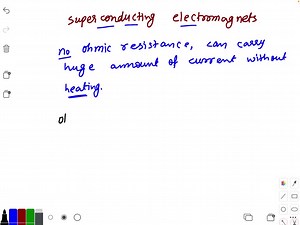 superconducting electromagnets
no ohmic resistance, can carry
huge amount of current without
heating.
ol